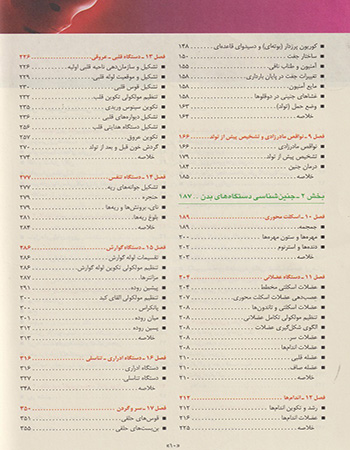 کوریون پرزدار (بوته‌ای) و دسیدوای قاعده‌ای ۱۴۸
ساختار جفت ۱۵۰
آمنیون و طناب نافی ۱۵۵
تغییرات جفت در پایان بارداری ۱۵۸
مایع آمنیون ۱۵۸
غشاهای جنینی در دوقلوها ۱۵۸
وضع حمل (تولد) ۱۶۳
خلاصه ۱۶۴
فصل ۹ ـ نواقص مادرزادی و تشخیص پیش از تولد ۱۶۶
نواقص مادرزادی ۱۶۶
تشخیص پیش از تولد ۱۷۹
درمان جنین ۱۸۴
خلاصه ۱۸۵
بخش ۲ ـ جنین‌شناسی دستگاه‌های بدن ۱۸۷
فصل ۱۰ ـ اسکلت محوری ۱۸۹
جمجمه ۱۸۹
مهره‌ها و ستون مهره‌ها ۲۰۰
دنده‌ها و استرنوم ۲۰۲
خلاصه ۲۰۳
فصل ۱۱ ـ دستگاه عضلانی ۲۰۴
عضلات اسکلتی مخطط ۲۰۴
عصب‌دهی عضلات اسکلت محوری ۲۰۷
عضلات اسکلتی و تاندون‌ها ۲۰۸
تنظیم مولکولی تکامل عضلانی ۲۰۸
الگوی شکل‌گیری عضلات ۲۰۸
عضلات سر ۲۰۸
عضلات اندام‌ها ۲۰۸
عضله قلبی ۲۱۰
عضله صاف ۲۱۰
خلاصه ۲۱۰
فصل ۱۲ ـ اندام‌ها ۲۱۲
رشد و تکوین اندام‌ها ۲۱۲
عضلات اندام‌ها ۲۱۶
خلاصه ۲۲۵
فصل ۱۳ ـ دستگاه قلبی ـ عروقی ۲۲۶
تشکیل و سازمان‌دهی ناحیه قلبی اولیه ۲۲۶
تشکیل و موقعیت لوله قلبی ۲۲۹
تشکیل قوس قلبی ۲۳۰
تنظیم مولکولی تکوین قلب ۲۳۲
تکوین سینوس وریدی ۲۳۵
تشکیل دیواره‌های قلبی ۲۳۶
تشکیل دستگاه هدایتی قلب ۲۵۶
تکوین عروق ۲۵۷
گردش خون قبل و بعد از تولد ۲۷۰
خلاصه ۲۷۴
فصل ۱۴ ـ دستگاه تنفس ۲۷۷
تشکیل جوانه‌های ریه ۲۷۷
حنجره ۲۷۹
نای، برونش‌ها و ریه‌ها ۲۷۹
بلوغ ریه‌ها ۲۸۱
خلاصه ۲۸۴
فصل ۱۵ ـ دستگاه گوارش ۲۸۶
تقسیمات لوله گوارش ۲۸۶
تنظیم مولکولی تکوین لوله گوارش ۲۸۶
مزانترها ۲۸۷
پیشین روده ۲۹۱
تنظیم مولکولی القای کبد ۳۰۰
پانکراس ۳۰۰
میان روده ۳۰۱
پسین روده ۳۱۲
خلاصه ۳۱۳
فصل ۱۶ ـ دستگاه ادراری ـ تناسلی ۳۱۶
دستگاه ادراری ۳۱۶
دستگاه تناسلی ۳۲۷
خلاصه ۳۴۸
فصل ۱۷ ـ سر و گردن ۳۵۰
قوس‌های حلقی ۳۵۱
بن‌بست‌های حلقی ۳۵۵
«۱۰»